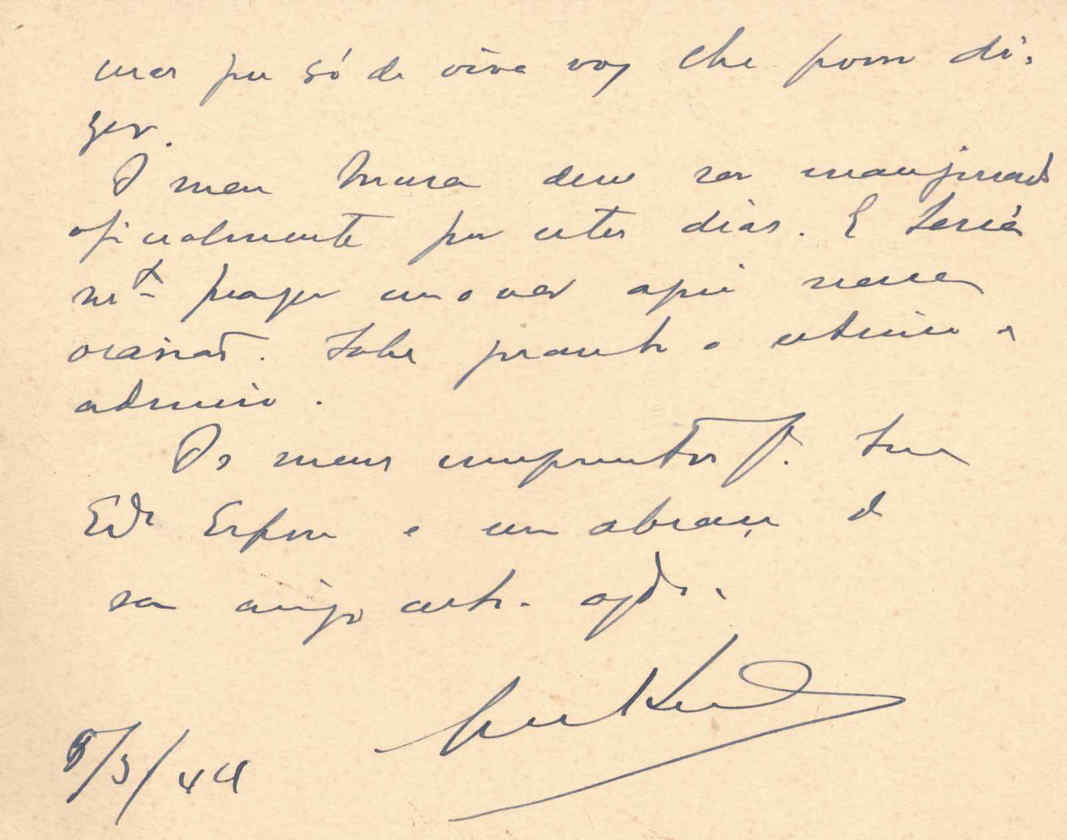 mas que só de viva voz lhe posso di-
zer.
O meu Museu deve ser inaugurado
oficialmente por estes dias. E teria
mto prazer em o ver aqui nessa
ocasião. Sabe quanto o estimo e
admiro.
Os meus cumprimentos p. Sua
Exa Esposa e um abraço do
seu amigo certo
5/3/44